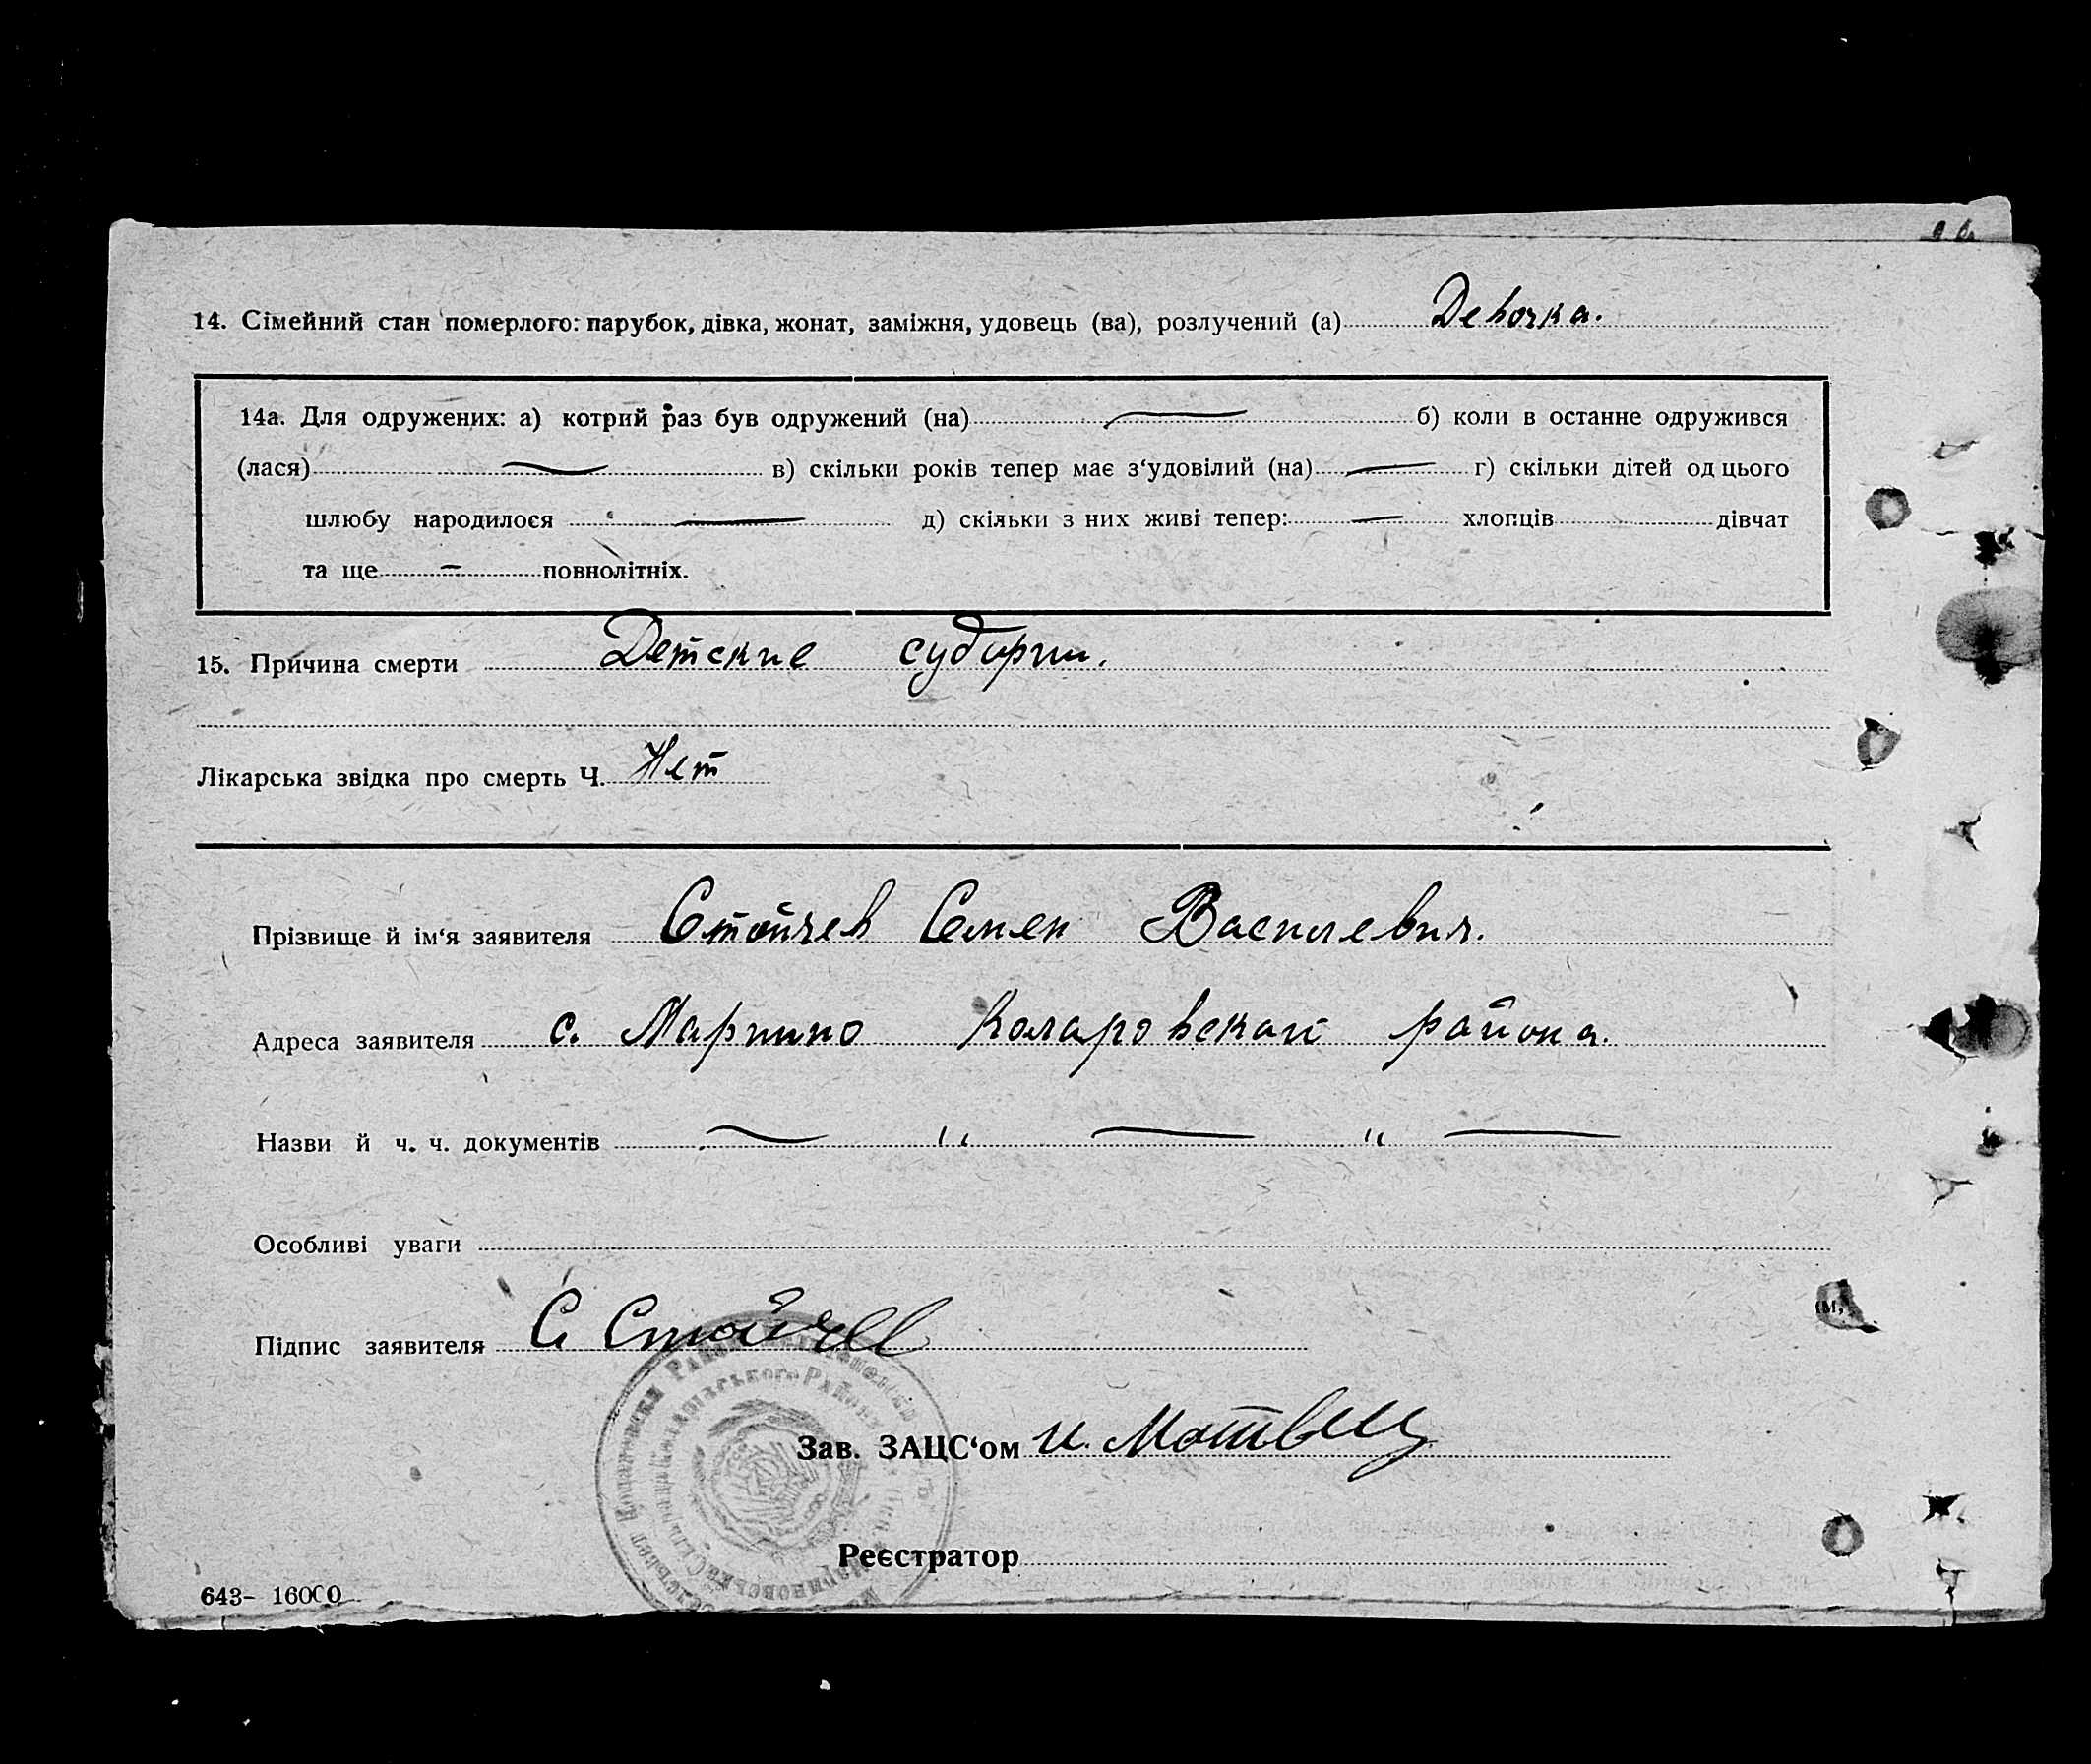 14. Сімейний стан померлого: парубок, дівка, жонат, заміжня, удовець (ва), розлучений (а) Девочка.
14а. Для одружених: а) котрий раз був одружений (на) — б) коли в останне одружився
(лася) — в) скільки років тепер має з‘удовілий (на) — г) скільки дітей од цього
шлюбу народилося — д) скільки з них живі тепер: — хлопців дівчат
та ще — повнолітніх.
15. Причина смерти Детские судорги.
Лікарська звідка про смерть Ч. Нет
Прізвище й ім‘я заявителя Стойчев Семен Василевич.
Адреса заявителя с. Марино Коларовскай района.
Назви й ч. ч. документів — „ — „ —
Особливі уваги
Підпис заявителя С Стойчев
Зав. ЗАЦС‘ом И.
Реєстратор
643- 16000